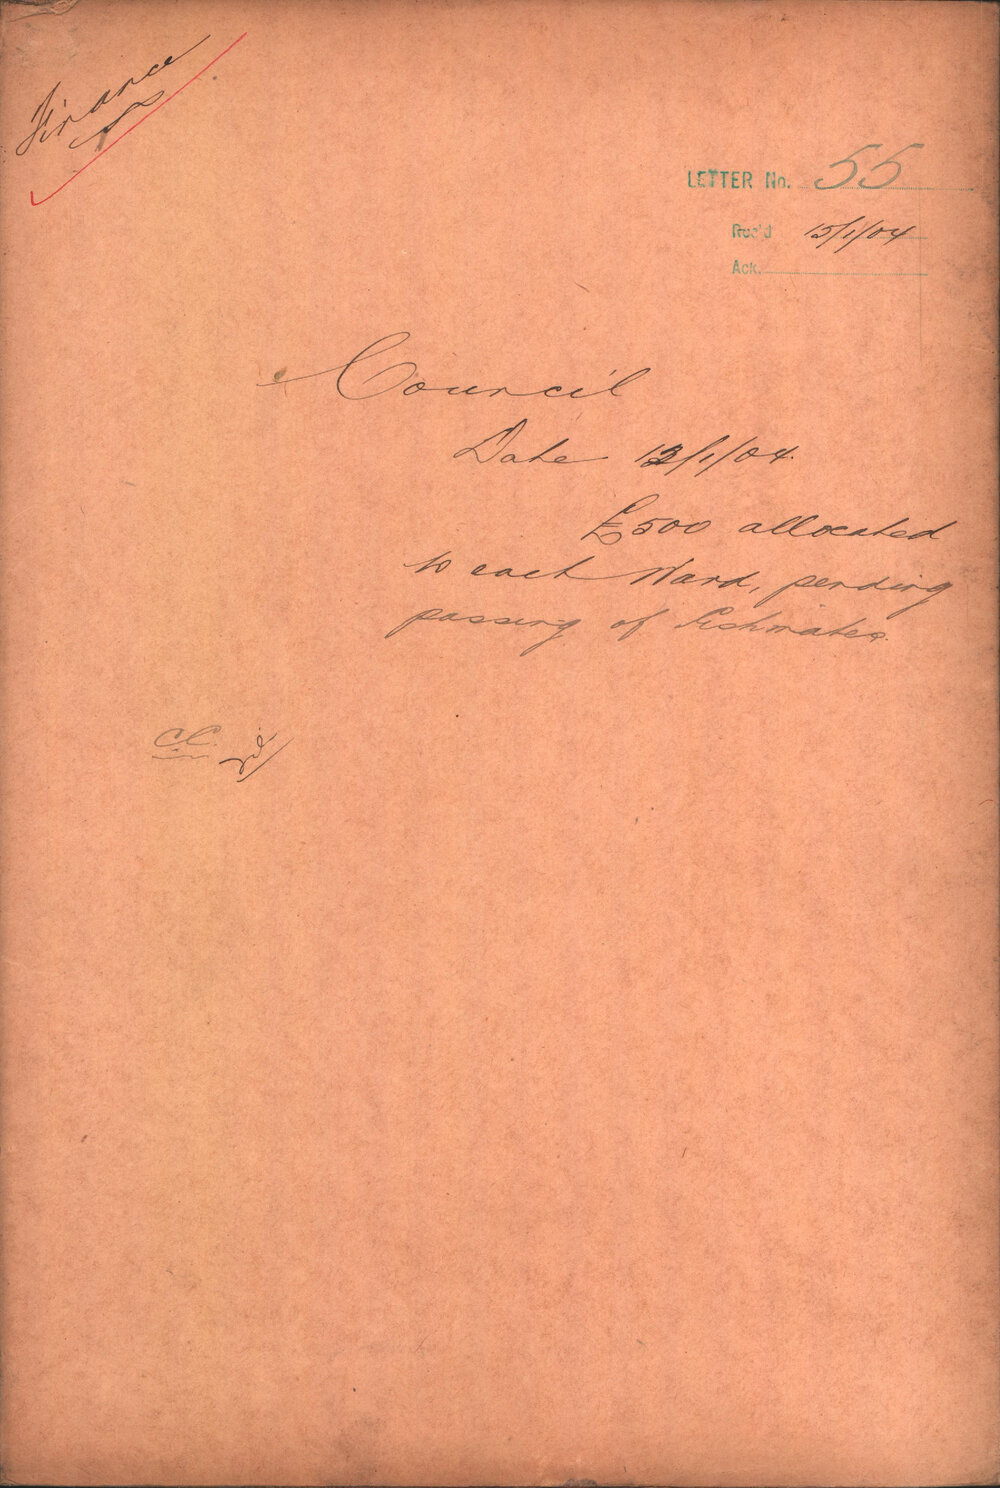 Finance
LETTER No. 55
Rec'd 15/1/04
Ack.
Council
Date 13/1/04.
£500 allocated
to each Ward, pending
passing of Estimates.
CC.